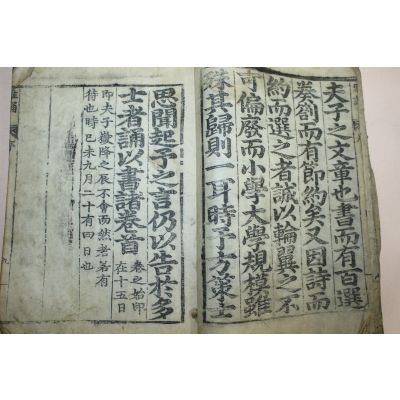 夫子之文章也書而有百選
奏劄而有節約矣又因詩而
約而選之者誠以輪翼之不
可偏廢而小學大學規模雖
殊其歸則一耳時予方策士
思聞起予之言仍以告於多
士者誦以書諸卷首
卷之始印
在十五日
即夫子嶽降之辰不會而然若有
待也時己未九月二十有四日也